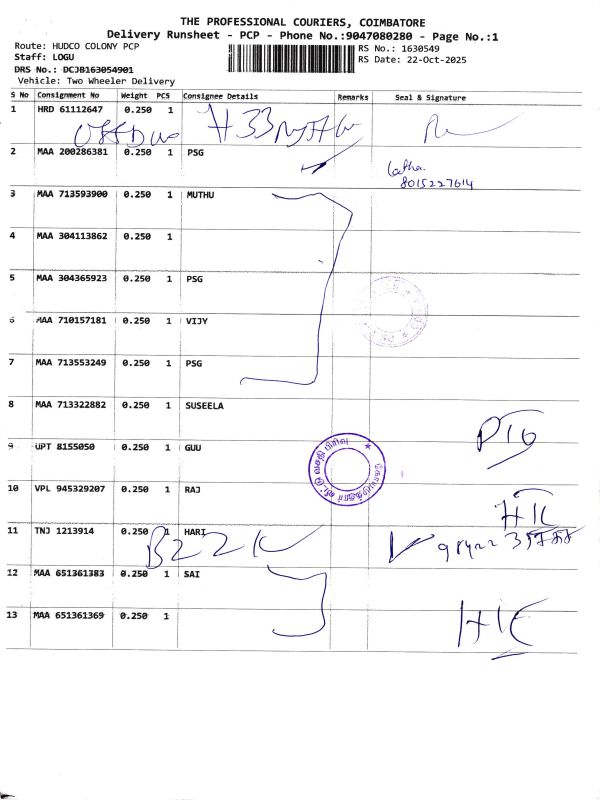 THE PROFESSIONAL COURIERS, COIMBATORE
Delivery Runsheet - PCP - Phone No.:9047080280 - Page No.:1
Route: HUDCO COLONY PCP
Staff: LOGU
DRS No.: DCJB163054901
Vehicle: Two Wheeler Delivery
RS No.: 1630549
RS Date: 22-Oct-2025
S No Consignment No Weight PCS Consignee Details Remarks Seal & Signature
1 HRD 61112647 0.250 1
2 MAA 200286381 0.250 1 PSG
Latha
8015227614
3 MAA 713593900 0.250 1 MUTHU
4 MAA 304113862 0.250 1
5 MAA 304365923 0.250 1 PSG
6 MAA 710157181 0.250 1 VIJY
7 MAA 713553249 0.250 1 PSG
8 MAA 713322882 0.250 1 SUSEELA
9 UPT 8155050 0.250 1 GUU
10 VPL 945329207 0.250 1 RAJ
11 TNJ 1213914 0.250 1 HARI
12 MAA 651361383 0.250 1 SAI
13 MAA 651361369 0.250 1